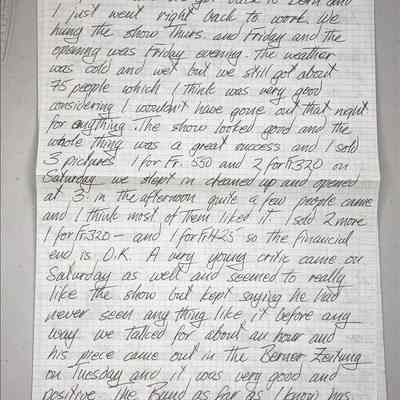 I just went right back to work. We
hung the show Thurs. and Friday and the
opening was Friday evening. The weather
was cold and wet but we still got about
75 people which I think was very good
considering I wouldn't have gone out that night
for anything. The show looked good and the
whole thing was a great success and I sold
3 pictures 1 for Fr. 530 and 2 for Fr 320 on
Saturday we slept in cleaned up and opened
at 3. in the afternoon quite a few people came
and I think most of them liked it. I sold 2 more
1 for Fr 320 - and 1 for Fr 425 so the financial
end is O.K. A very young critic came on
Saturday as well and seemed to really
like the show but kept saying he had
never seen anything like it before any
way we talked for about an hour and
his piece came out in the Berner Zeitung
on Tuesday and it was very good and
positive. The Bund as far as I know has